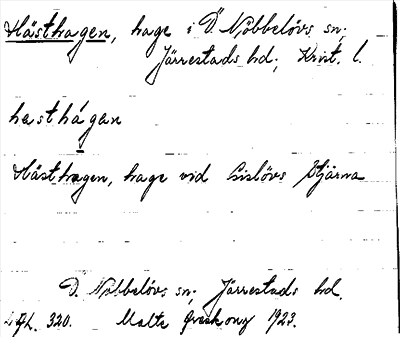 Hästhagen, hage i Ö. Nöbbelövs sn;
Järrestads hd; Krist. l.
hasthágan
Hästhagen, hage vid Gislövs Stjärna
Ö. Nöbbelövs sn; Järrestads hd.
320. Malte 1923.